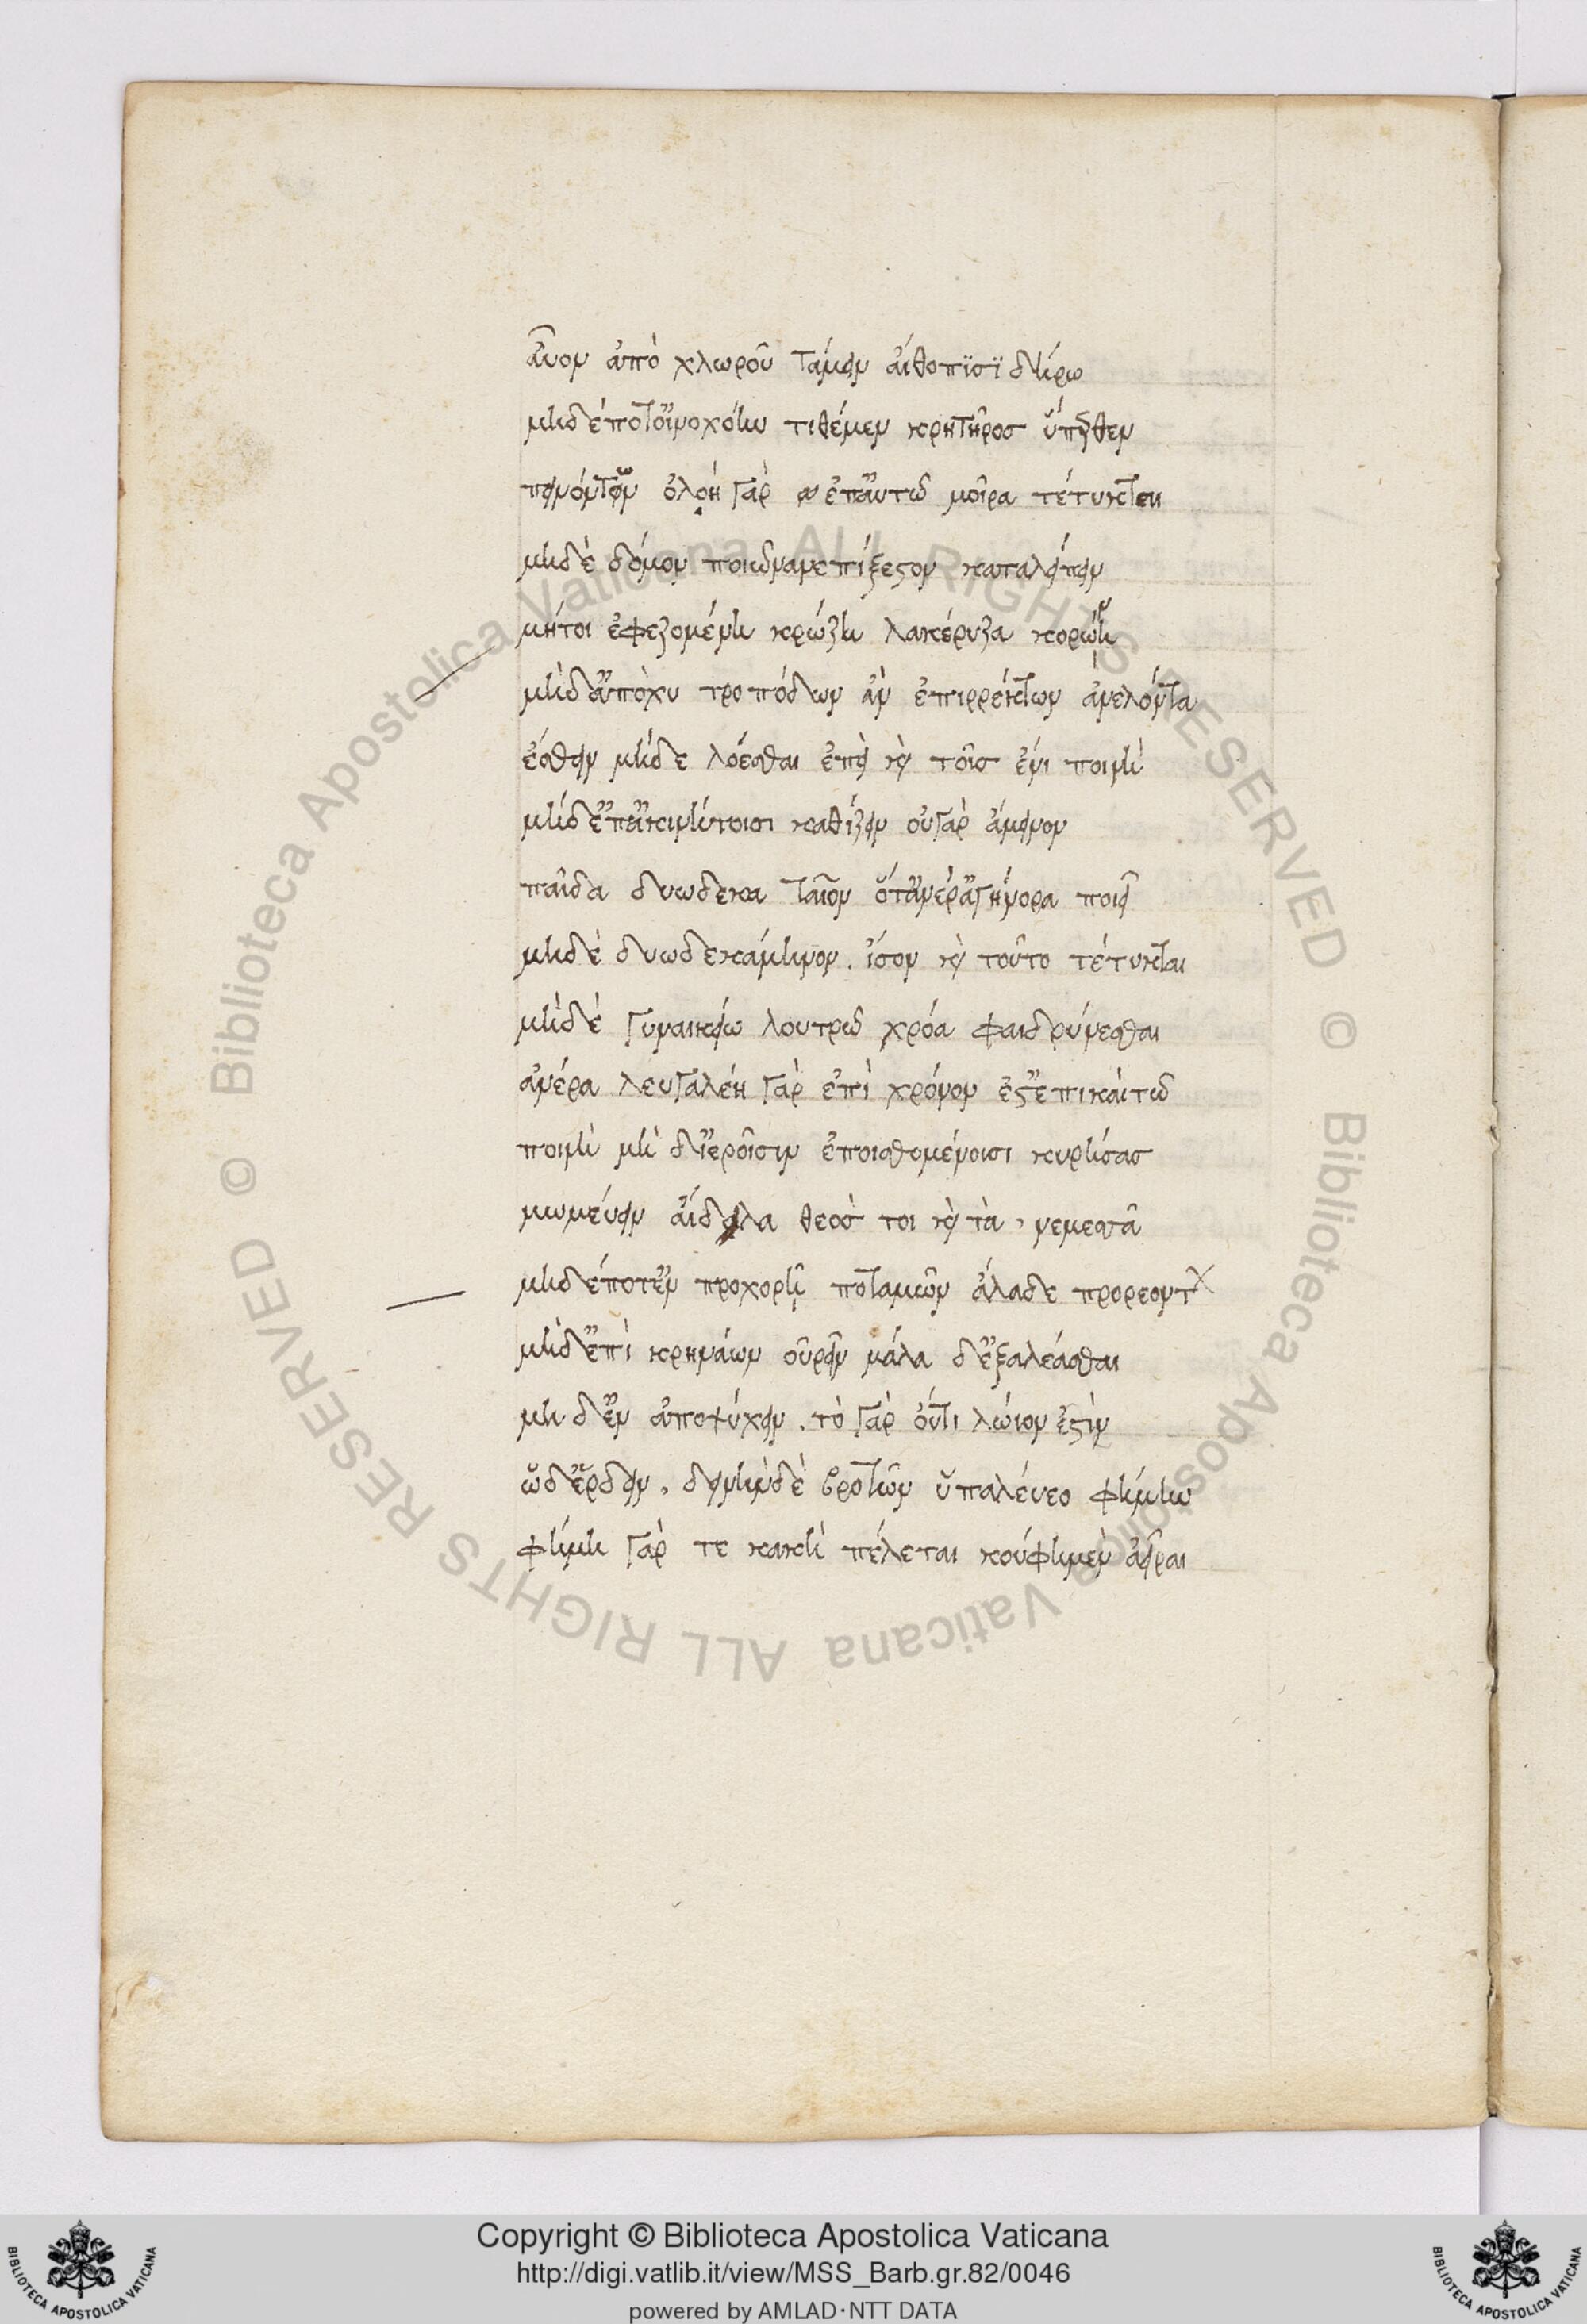 αὖον ἀπὸ χλωροῦ τάμειν αἴθοπϊσϊ δήρω
μηδέποτ οἰνοχόην τιθέμεν κρητῆροσ ὕπερθεν
πεινόντων ὀλοὴ γὰρ ἐπ αυτῶ μοῖρα τέτυκται
μηδὲ δόμον ποιῶν ανεπίξεστον καταλείπειν
μήτοι ἐφεζομένη κρώζη λακέρυζα κορώνη
μηδ ἀπὸ χυτροπόδων ἀν ἐπιρρέκτων ἀνελόντα
ἔσθειν μήδε λόεσθαι ἐπεὶ καὶ τοῖσ ἔνι ποινὴ
μήδ ἐπ ἀκινήτοισι καθίζειν οὐ γὰρ ἄμεινον
παῖδα δυωδεκαταῖον ὅτ ἀνέρ ἀγήνορα ποιεῖ
μηδὲ δυωδεκάμηνον. ἴσον καὶ τοῦτο τέτυκται
μὴδὲ γυναικείω λουτρῶ χρόα φαιδρύνεσθαι
ἀνέρα λευγαλέη γὰρ ἐπὶ χρόνον ἐστ επι καὶ τῶ
ποινὴ μὴ δ ἱεροῖσιν ἐποισθομένοισι κυρήσασ
μωμεύειν ἀίδηλα θεόσ τοι καὶ τὰ, νεμεσσᾶ
μηδέποτ ἐν προχοῇ ποταμῶν ἅλαδε προρεοντ
μὴδ ἐπὶ κρηνάων οὐρεῖν μάλα δ ἐξαλεάσθαι
μη δ ἐν ἀποψύχειν. τὸ γὰρ ὄυτι λώιον ἐστὶν
ὧδ ἔρδειν. δεινὴν δὲ βροτῶν ὑπαλέυεο φήμην
φήμη γὰρ τε κακὴ πέλεται κούφη μεν ἀεῖραι
Copyright © Biblioteca Apostolica Vaticana
http://digi.vatlib.it/view/MSS_Barb.gr.82/0046
powered by AMLAD·NTT DATA